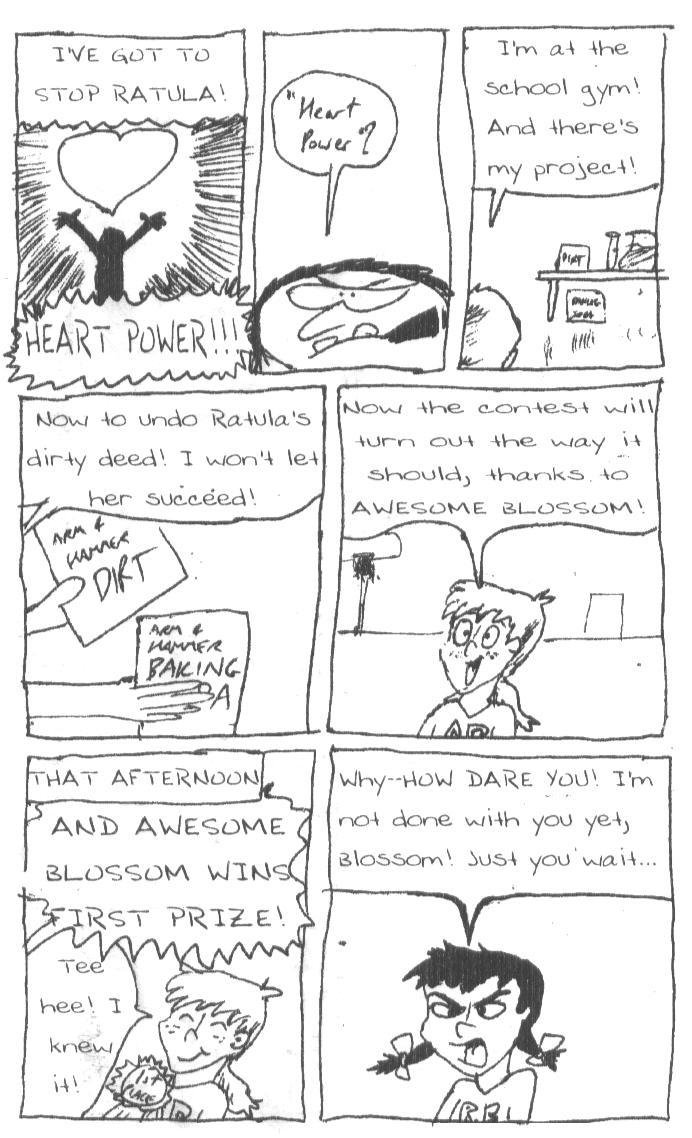 I'VE GOT TO
STOP RATULA!
HEART POWER!!!
"Heart
Power"?
I'm at the
school gym!
And there's
my project!
DIRT
BAKING
SODA
Now to undo Ratula's
dirty deed! I won't let
her succeed!
ARM &
HAMMER
DIRT
ARM &
HAMMER
BAKING
A
Now the contest will
turn out the way it
should, thanks to
AWESOME BLOSSOM!
AB!
THAT AFTERNOON
AND AWESOME
BLOSSOM WINS
FIRST PRIZE!
Tee
hee! I
knew
it!
1ST
PLACE
Why--HOW DARE YOU! I'm
not done with you yet,
Blossom! Just you wait...